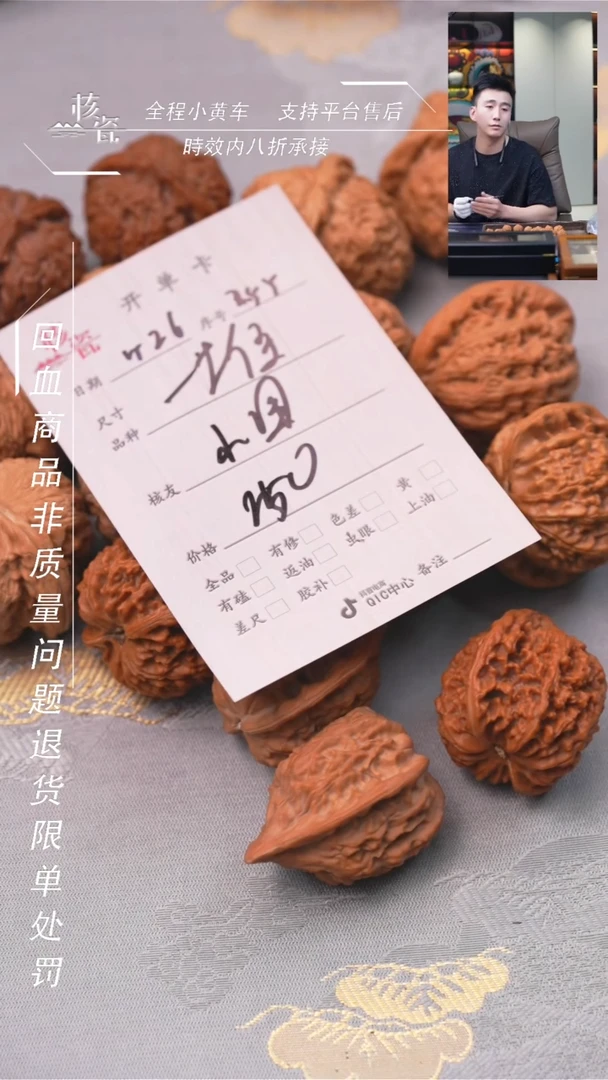 核瓷
全程小黄车 支持平台售后
時效内八折承接
回血商品非质量问题退货限单处罚
开单卡
日期 序号
尺寸
品种
核友 小国
价格
全品 有修 色差 黄
有磕 返油 虫眼 上油
差尺 胶补
抖音电商
QIC中心 备注